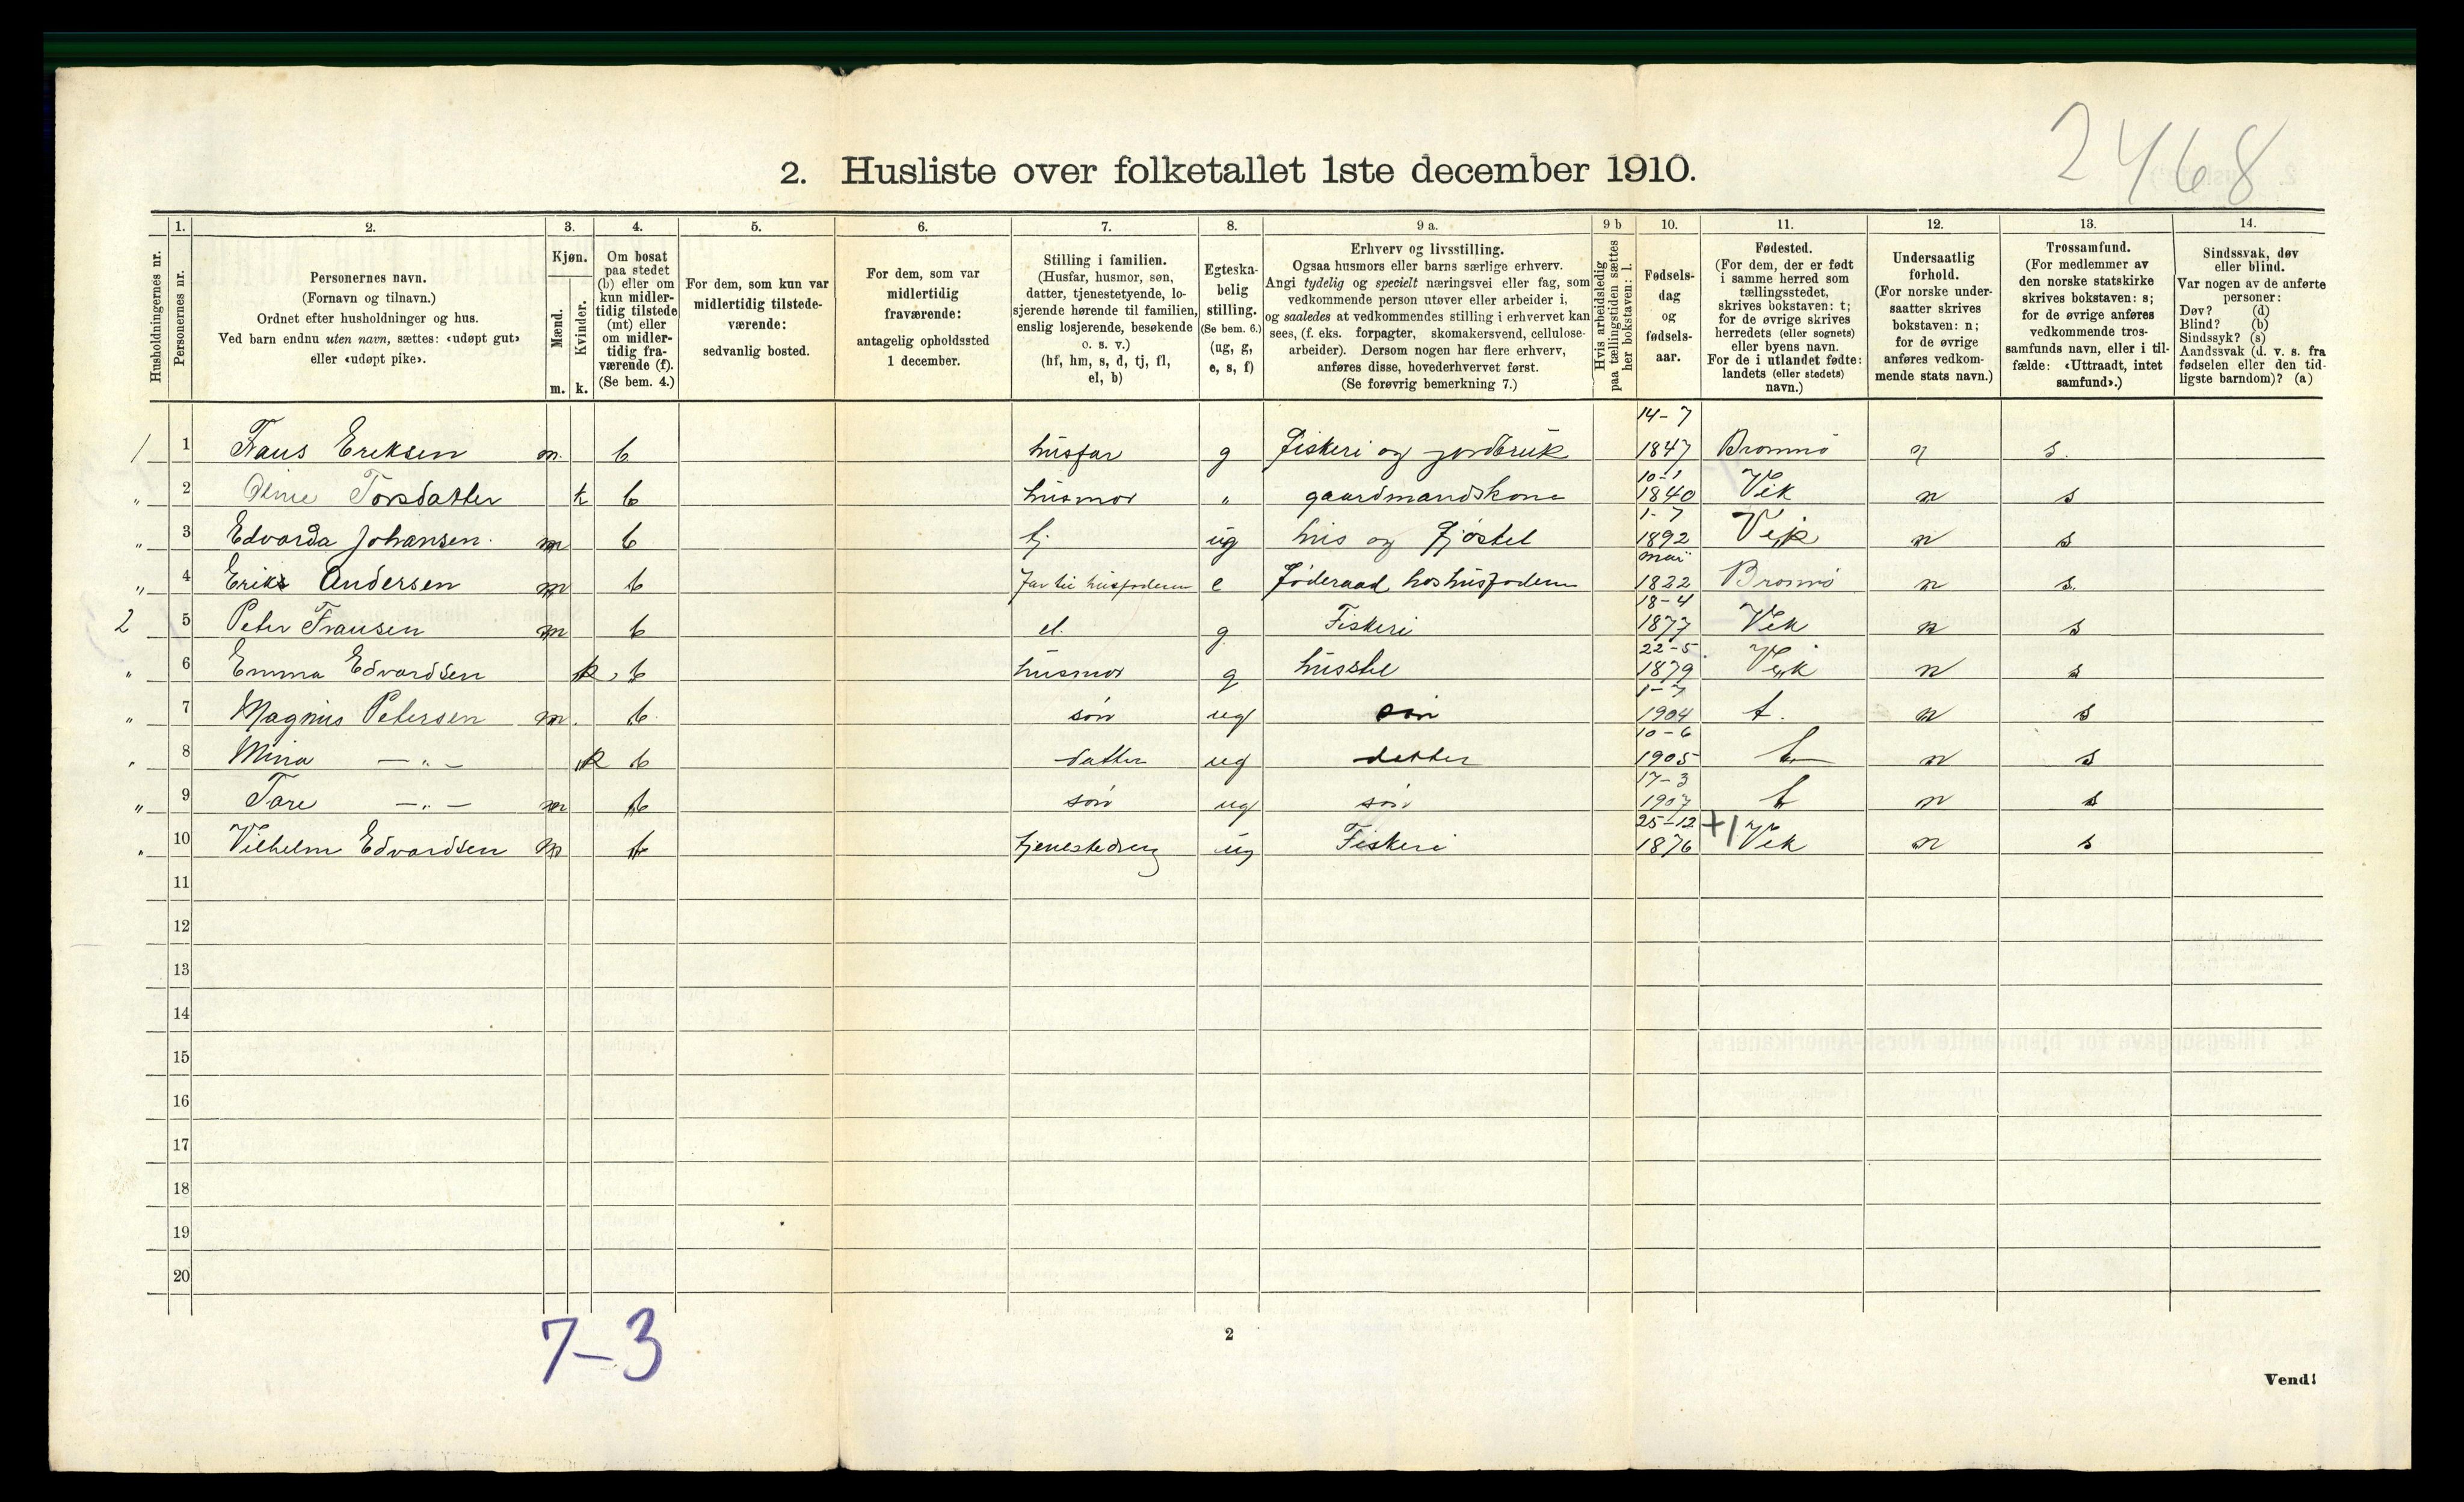 2468
2. Husliste over folketallet 1ste december 1910.
Husholdningernes nr.
1. Personernes nr.
2. Personernes navn.
(Fornavn og tilnavn.)
Ordnet efter husholdninger og hus.
Ved barn endnu uten navn, sættes: «udøpt gut»
eller «udøpt pike».
3. Kjøn.
Mænd. m.
Kvinder. k.
4. Om bosat
paa stedet
(b) eller om
kun midler-
tidig tilstede
(mt) eller
om midler-
tidig fra-
værende (f).
(Se bem. 4.)
5. For dem, som kun var
midlertidig tilstede-
værende:
sedvanlig bosted.
6. For dem, som var
midlertidig
fraværende:
antagelig opholdssted
1 december.
7. Stilling i familien.
(Husfar, husmor, søn,
datter, tjenestetyende, lo-
sjerende hørende til familien,
enslig losjerende, besøkende
o. s. v.)
(hf, hm, s, d, tj, fl,
el, b)
8. Egteska-
belig
stilling.
(Se bem. 6.)
(ug, g,
e, s, f)
9 a. Erhverv og livsstilling.
Ogsaa husmors eller barns særlige erhverv.
Angi tydelig og specielt næringsvei eller fag, som
vedkommende person utøver eller arbeider i,
og saaledes at vedkommendes stilling i erhvervet kan
sees, (f. eks. forpagter, skomakersvend, cellulose-
arbeider). Dersom nogen har flere erhverv,
anføres disse, hovederhvervet først.
(Se forøvrig bemerkning 7.)
9 b Hvis arbeidsledig
paa tællingstiden sættes
her bokstaven: l.
10. Fødsels-
dag
og
fødsels-
aar.
11. Fødested.
(For dem, der er født
i samme herred som
tællingsstedet,
skrives bokstaven: t;
for de øvrige skrives
herredets (eller sognets)
eller byens navn.
For de i utlandet fødte:
landets (eller stedets)
navn.)
12. Undersaatlig
forhold.
(For norske under-
saatter skrives
bokstaven: n;
for de øvrige
anføres vedkom-
mende stats navn.)
13. Trossamfund.
(For medlemmer av
den norske statskirke
skrives bokstaven: s;
for de øvrige anføres
vedkommende tros-
samfunds navn, eller i til-
fælde: «Uttraadt, intet
samfund».)
14. Sindssvak, døv
eller blind.
Var nogen av de anførte
personer:
Døv? (d)
Blind? (b)
Sindssyk? (s)
Aandssvak (d. v. s. fra
fødselen eller den tid-
ligste barndom)? (a)
1 1 Frans Eriksen m. b husfar g fiskeri og jordbruk 14-7 1847 Bronnø s.
" 2 Torsdatter k b husmor " gaardmandskone 10-1 1840 Vik n s
" 3 Edvarda Johansen. m b tj ug hus og fjøstel 1-7 1892 Vik n s
" 4 Erik Andersen m b far til husfaderen e føderaad hos husfaderen mai 1822 Bronnø n s.
2 5 Peter Fransen m b el. g Fiskeri 18-4 1877 Vik n s
" 6 Emma Edvardsen k b husmor g husstel 22-5 1879 Vik n s
" 7 Magnus Petersen m. b søn ug søn 1-7 1904 t. n s
" 8 Mina — " — k b datter ug datter 10-6 1905 t n s
" 9 Tore — " — m b søn ug søn 17-3 1907 t n s
" 10 Vilhelm Edvardsen m b tjenestedreng ug Fiskeri 25-12 1876 +1 Vik n s
11
12
13
14
15
16
17
18
19
20
7-3
2
Vend!